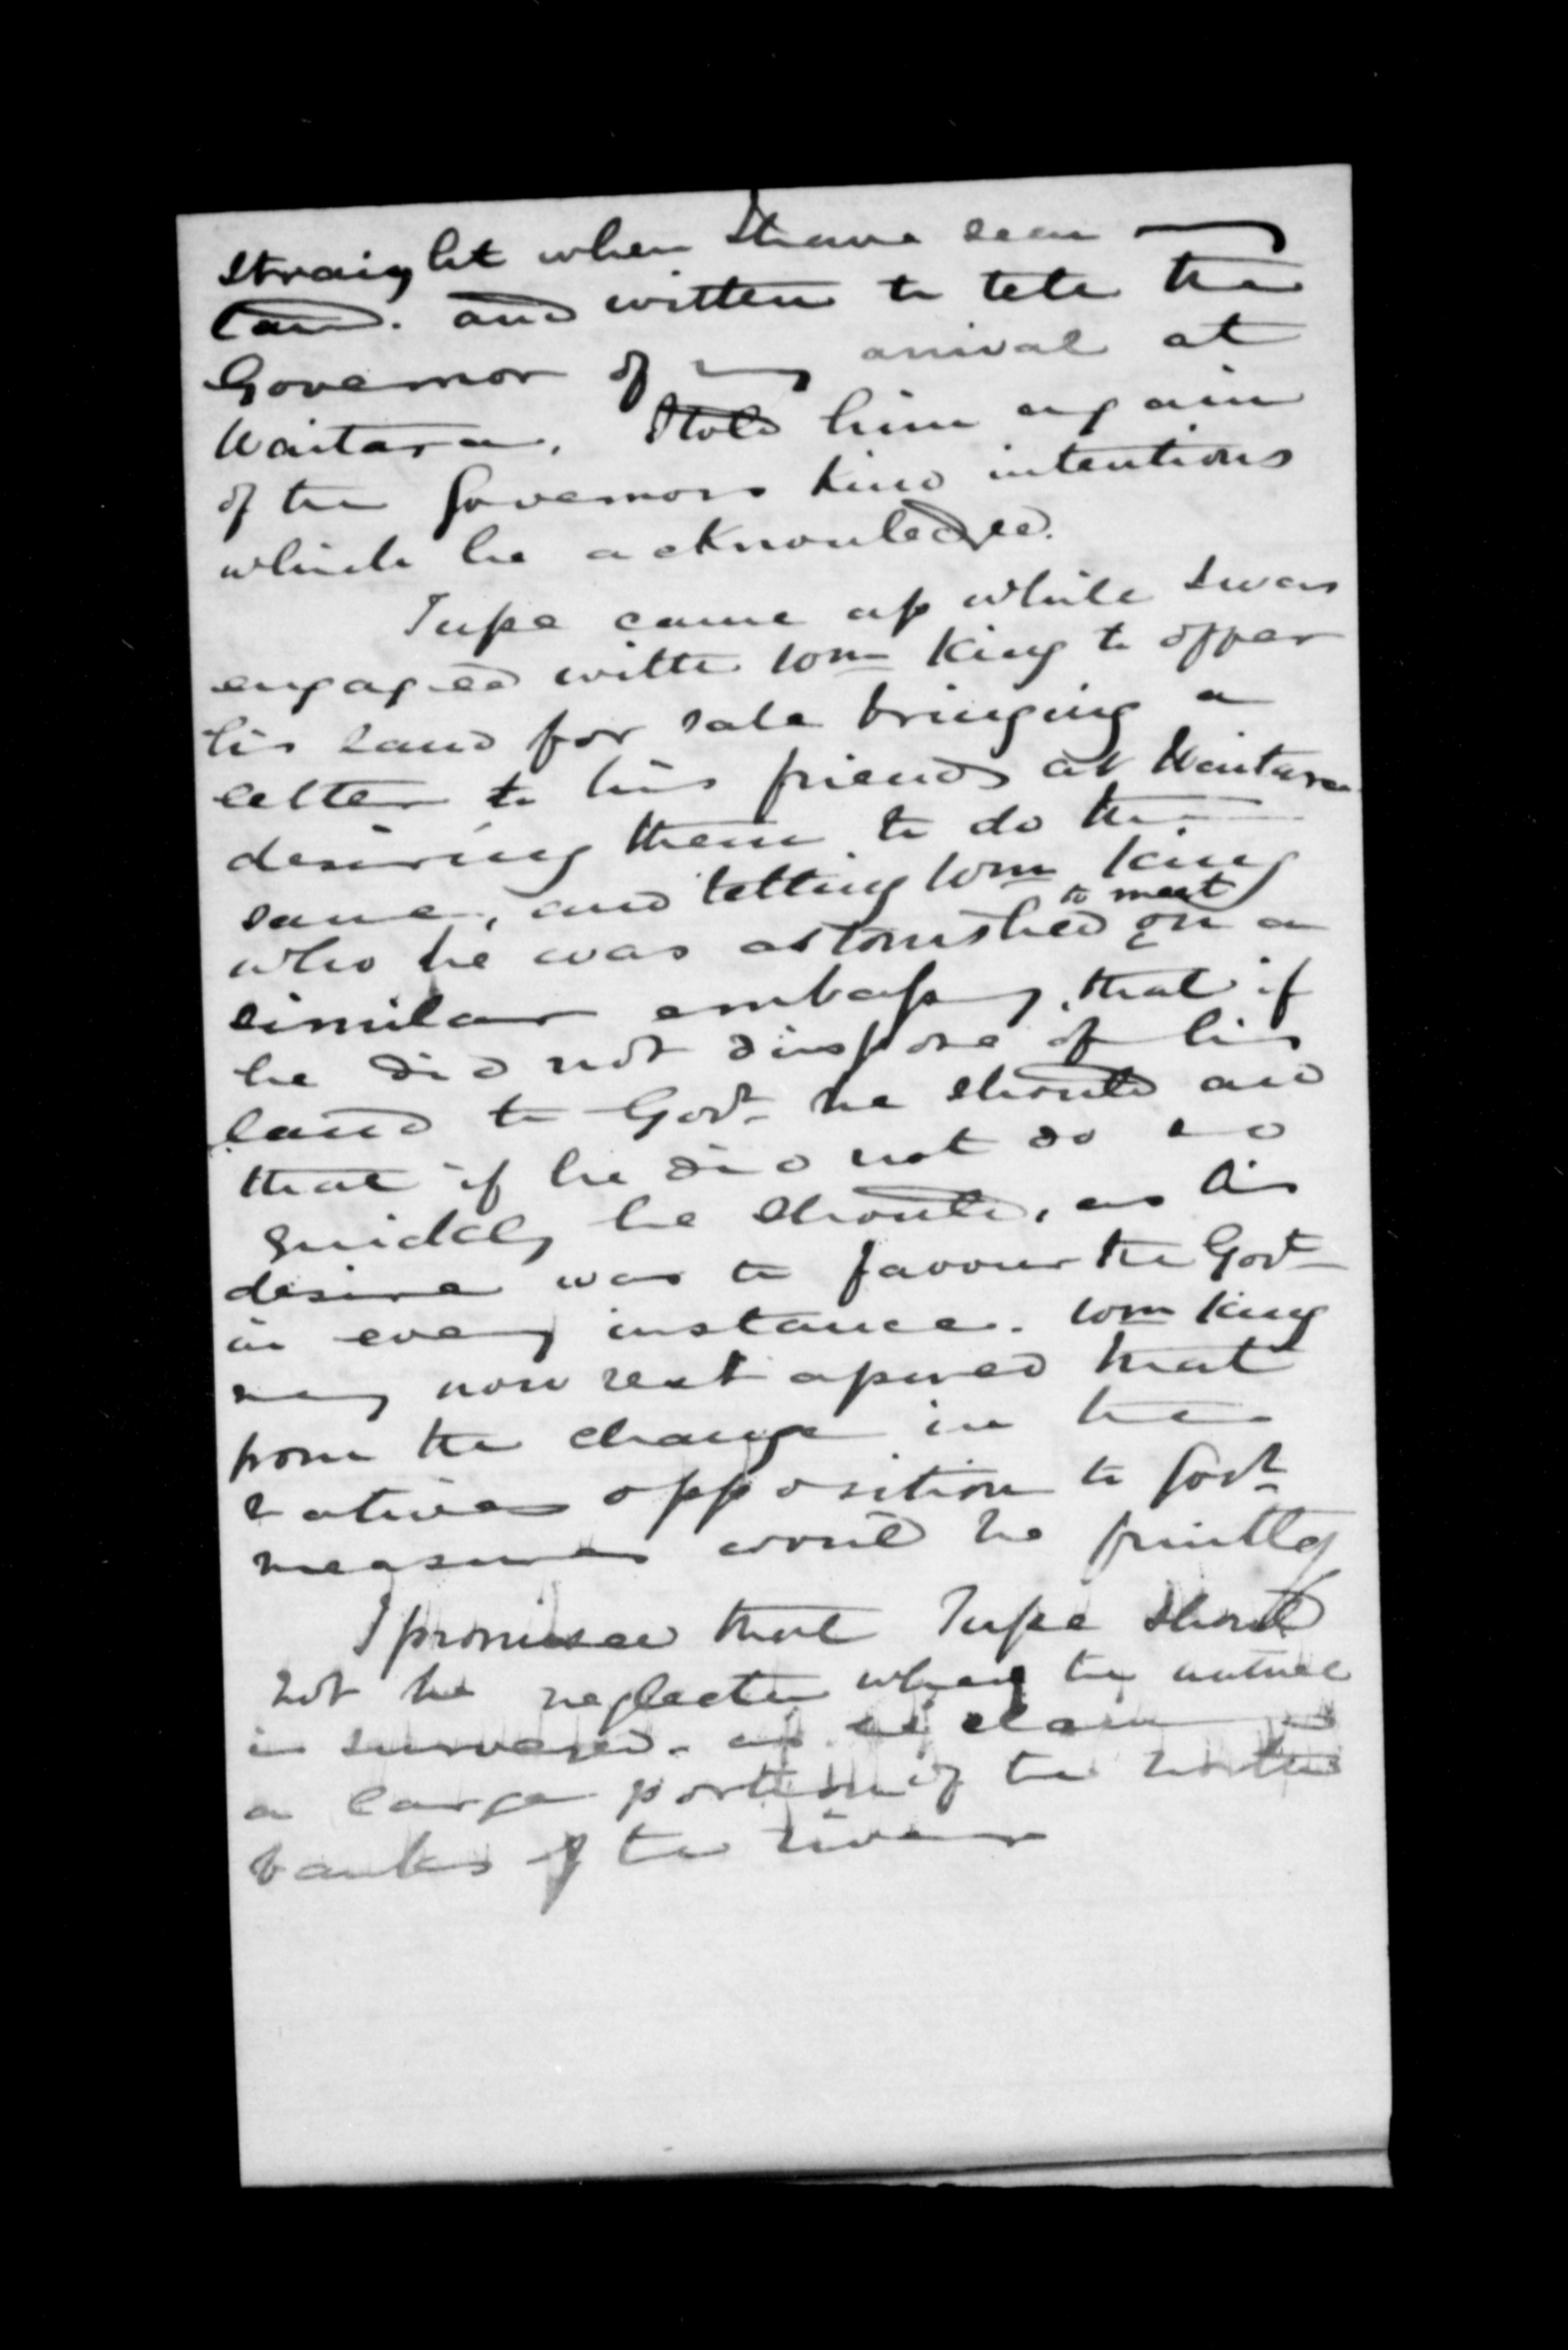 straight when I have seen my
land. and written to tell the
Governor of my arrival at
Waitara. I told him again
of the Governors kind intentions
which he acknowledged.
Tupe came up while I was
engaged with Wm King to offer
his land for sale bringing a
letter to his friends at Waitara
desiring them to do the
same, and telling Wm King
who he was astonished to meet on a
similar embassy, that if
he did not dispose of his
land to Govt he should and
that if he did not do so
quickly he should, as his
desire was to favour the Govt
in every instance. Wm King
may now rest assured that
from the change in the
natives opposition to Govt
measures would be
I promised that Tupe should
not be neglected when the
is surveyed. as he claims
a large portion of the north
banks of the river